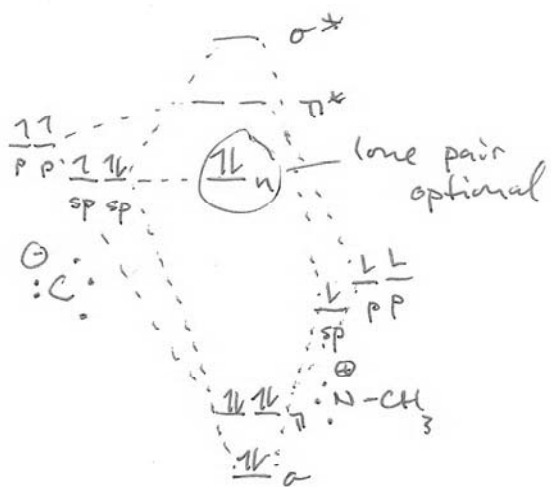 σ*
π*
p p
sp sp
n
lone pair
optional
⊖
:C
sp
p p
⊕
N-CH3
π
σ